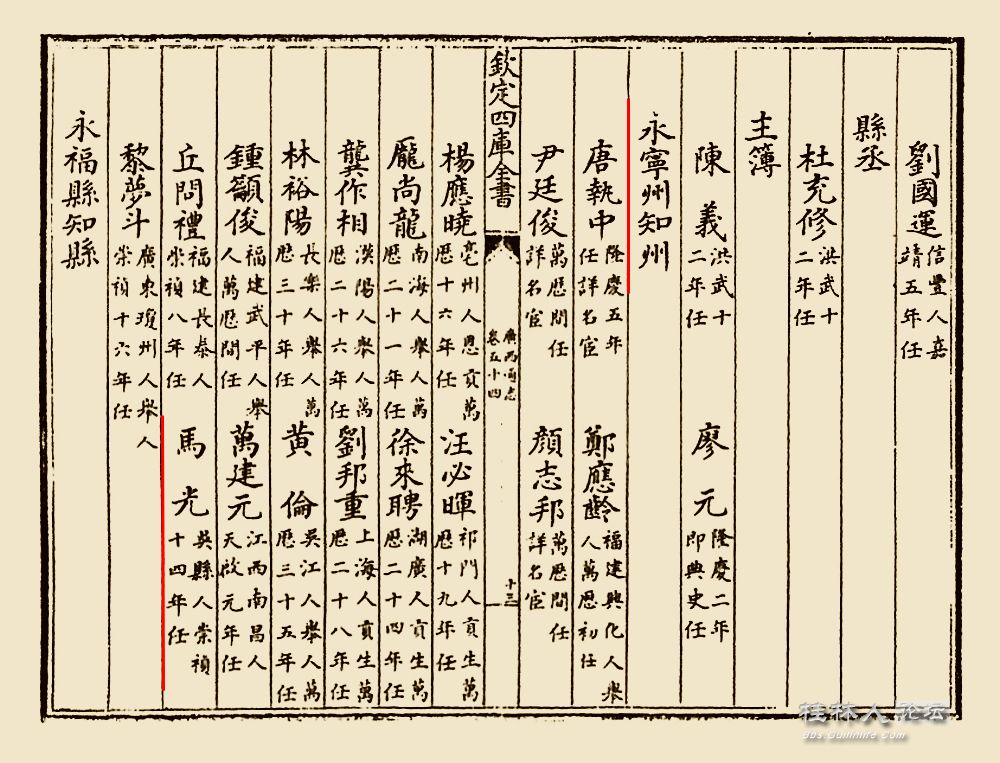 劉國運信豐人嘉靖五年任
縣丞
杜充修洪武十二年任
主簿
陳義洪武十二年任 廖元隆慶二年即典史任
永寧州知州
唐執中隆慶五年任詳名宦 鄭應齡福建興化人舉人萬厯初任
尹廷俊萬厯間任詳名宦 顔志邦萬厯間任詳名宦
欽定四庫全書 廣西通志卷五十四 十三
楊應曉亳州人恩貢萬厯十六年任 汪必暉祁門人貢生萬厯十九年任
龐尚龍南海人舉人萬厯二十一年任 徐來聘湖廣人貢生萬厯二十四年任
龔作相漢陽人舉人萬厯二十六年任 劉邦重上海人貢生萬厯二十八年任
林裕陽長樂人舉人萬厯三十年任 黄倫吳江人舉人萬厯三十五年任
鍾籲俊福建武平人舉人萬厯間任 萬建元江西南昌人天啟元年任
丘問禮福建長泰人崇禎八年任 馬光吳縣人崇禎十四年任
黎夢斗廣東瓊州人舉人崇禎十六年任
永福縣知縣
桂林人论坛
bbs.Guilinlife.com